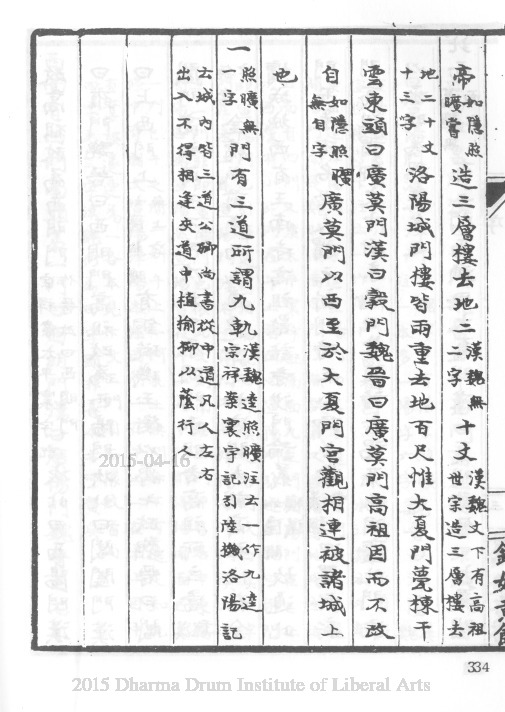 帝如隱照曠嘗造三層樓去地二漢魏無二字十丈漢魏丈下有高祖世宗造三層樓去
地二十丈十三字洛陽城門樓皆兩重去地百尺惟大夏門甍棟干
雲東頭曰廣莫門漢曰穀門魏晉曰廣莫門高祖因而不改
自如隱照曠無自字廣莫門以西至於大夏門宮觀相連被諸城上
也
一照曠無一字門有三道所謂九軌漢魏逵照曠注云一作九逵宗祥案寰宇記引陸機洛陽記
云城內皆三道公卿尚書從中道凡人左右出入不得相逢夾道中植榆柳以蔭行人
334
2015-04-16
2015 Dharma Drum Institute of Liberal Arts